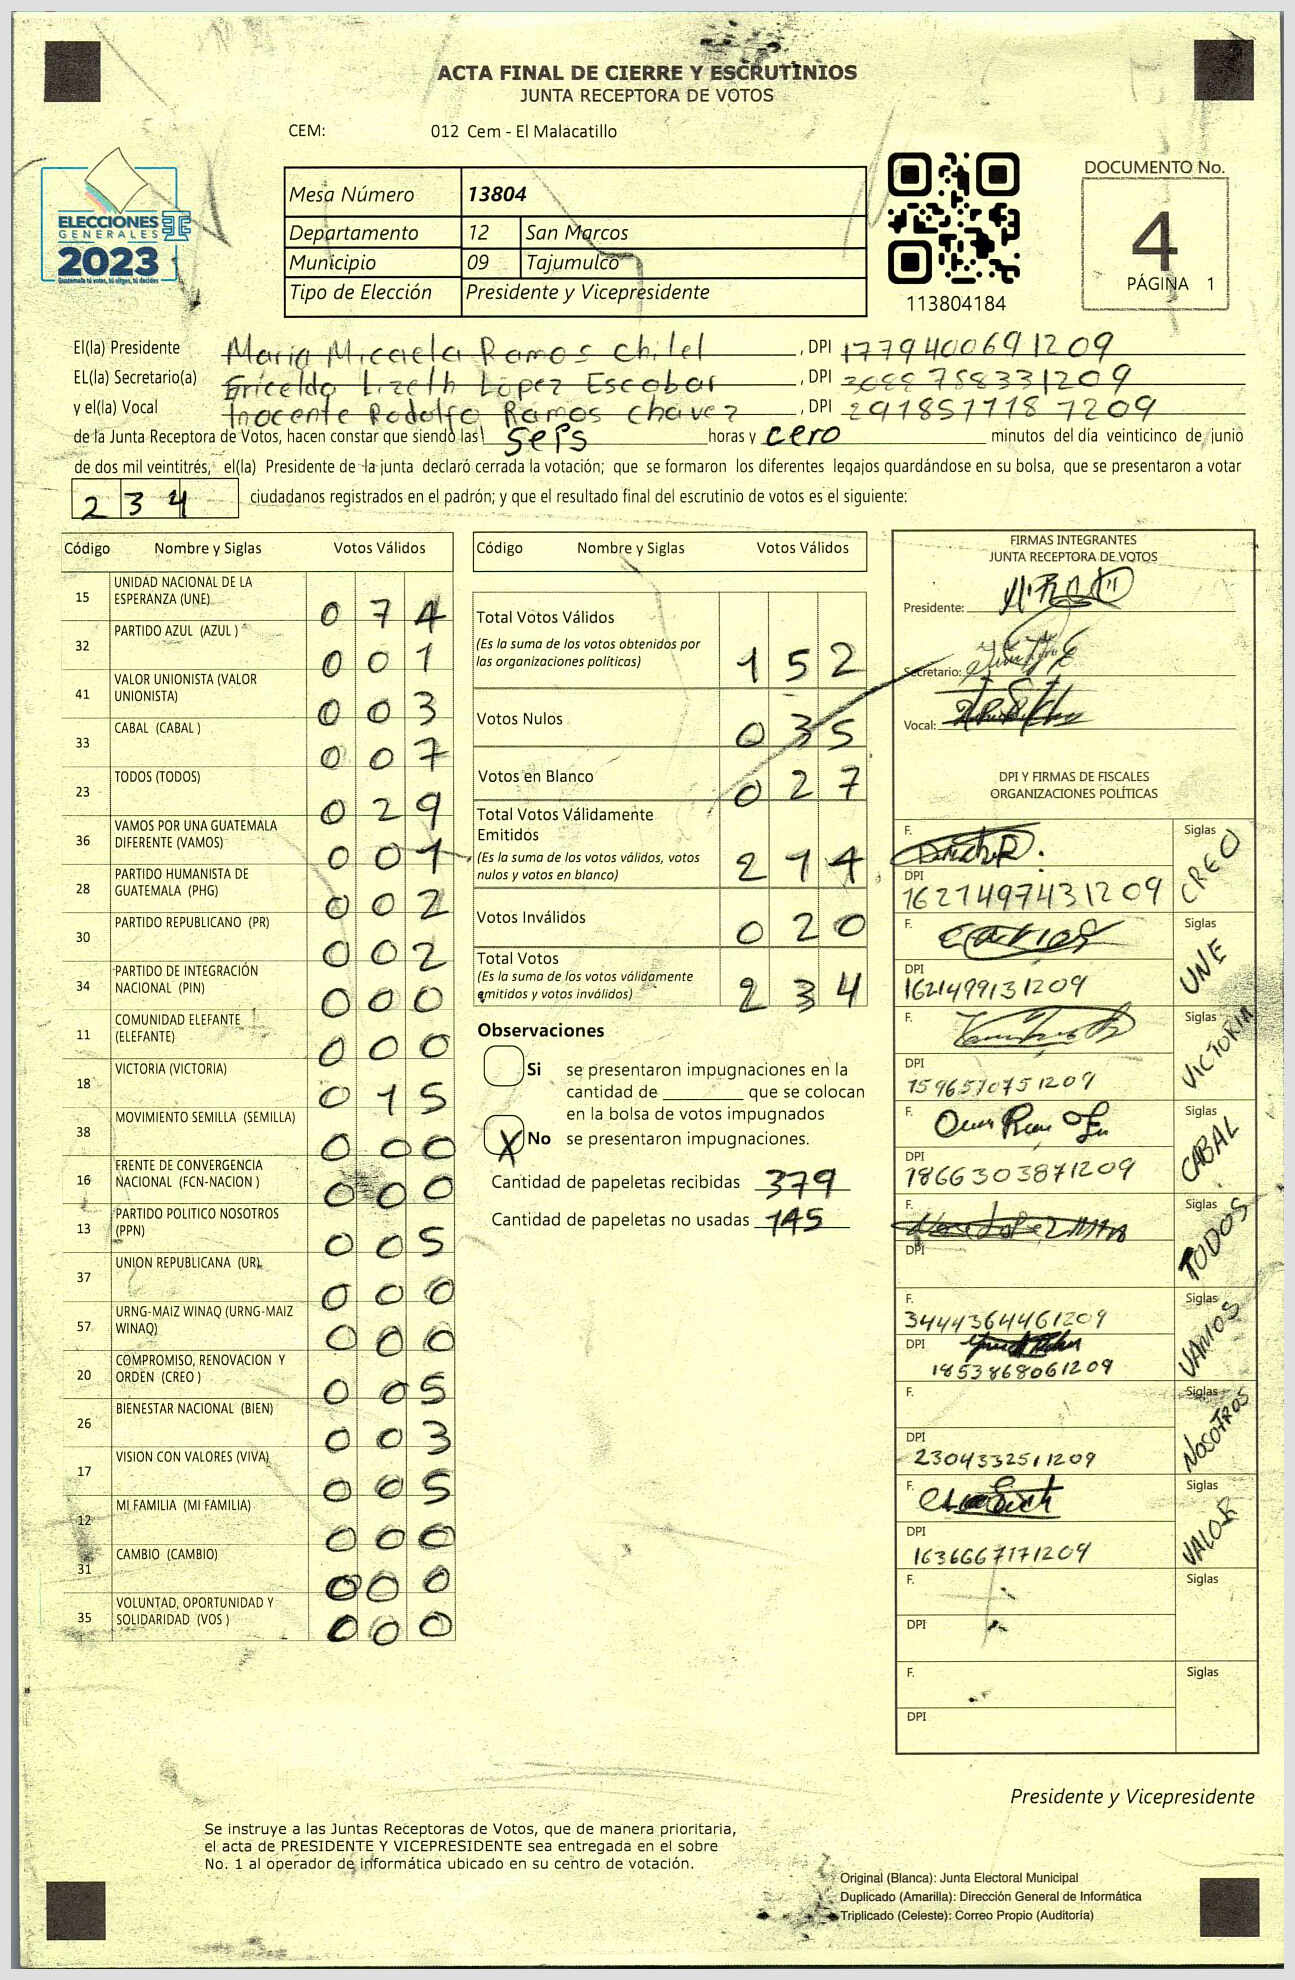 ACTA FINAL DE CIERRE Y ESCRUTINIOS
JUNTA RECEPTORA DE VOTOS
CEM: 012 Cem - El Malacatillo
ELECCIONES
GENERALES
2023
Guatemala tú votas, tú eliges, tú decides
Mesa Número 13804
Departamento 12 San Marcos
Municipio 09 Tajumulco
Tipo de Elección Presidente y Vicepresidente
113804184
DOCUMENTO No.
4
PÁGINA 1
El(la) Presidente Maria Micaela Ramos Chilel, DPI 1779400691209
EL(la) Secretario(a) Griceldo Lizeth López Escobar, DPI 3088758331209
y el(la) Vocal Inocente Rodolfo Ramos Chávez, DPI 2918577187209
de la Junta Receptora de Votos, hacen constar que siendo las seis horas y cero minutos del día veinticinco de junio
de dos mil veintitrés, el(la) Presidente de la junta declaró cerrada la votación; que se formaron los diferentes legajos quardándose en su bolsa, que se presentaron a votar
234 ciudadanos registrados en el padrón; y que el resultado final del escrutinio de votos es el siguiente:
Código Nombre y Siglas Votos Válidos
15 UNIDAD NACIONAL DE LA ESPERANZA (UNE) 074
32 PARTIDO AZUL (AZUL ) 001
41 VALOR UNIONISTA (VALOR UNIONISTA) 003
33 CABAL (CABAL ) 007
23 TODOS (TODOS) 029
36 VAMOS POR UNA GUATEMALA DIFERENTE (VAMOS) 001
28 PARTIDO HUMANISTA DE GUATEMALA (PHG) 002
30 PARTIDO REPUBLICANO (PR) 002
34 PARTIDO DE INTEGRACIÓN NACIONAL (PIN) 000
11 COMUNIDAD ELEFANTE (ELEFANTE) 000
18 VICTORIA (VICTORIA) 015
38 MOVIMIENTO SEMILLA (SEMILLA) 000
16 FRENTE DE CONVERGENCIA NACIONAL (FCN-NACION ) 000
13 PARTIDO POLITICO NOSOTROS (PPN) 005
37 UNION REPUBLICANA (UR) 000
57 URNG-MAIZ WINAQ (URNG-MAIZ WINAQ) 000
20 COMPROMISO, RENOVACION Y ORDEN (CREO ) 005
26 BIENESTAR NACIONAL (BIEN) 003
17 VISION CON VALORES (VIVA) 005
12 MI FAMILIA (MI FAMILIA) 000
31 CAMBIO (CAMBIO) 000
35 VOLUNTAD, OPORTUNIDAD Y SOLIDARIDAD (VOS ) 000
Código Nombre y Siglas Votos Válidos
Total Votos Válidos
(Es la suma de los votos obtenidos por
las organizaciones políticas) 152
Votos Nulos 035
Votos en Blanco 027
Total Votos Válidamente
Emitidos
(Es la suma de los votos válidos, votos
nulos y votos en blanco) 214
Votos Inválidos 020
Total Votos
(Es la suma de los votos válidamente
emitidos y votos inválidos) 234
Observaciones
Si se presentaron impugnaciones en la
cantidad de ________ que se colocan
en la bolsa de votos impugnados
X No se presentaron impugnaciones.
Cantidad de papeletas recibidas 379
Cantidad de papeletas no usadas 145
FIRMAS INTEGRANTES
JUNTA RECEPTORA DE VOTOS
Presidente:
Secretario:
Vocal:
DPI Y FIRMAS DE FISCALES
ORGANIZACIONES POLÍTICAS
F. Siglas CREO
DPI 1621497431209
F. Carlos Siglas UNE
DPI 1621499131209
F. Siglas VICTORIA
DPI 1596510751209
F. Siglas CABAL
DPI 1866303871209
F. Siglas TODOS
DPI
F. 3444364461209 Siglas VAMOS
DPI 1853868061209
F. Siglas NOSOTROS
DPI 2304332511209
F. Siglas VALOR
DPI 1636667171209
F. Siglas
DPI
F. Siglas
DPI
Presidente y Vicepresidente
Se instruye a las Juntas Receptoras de Votos, que de manera prioritaria,
el acta de PRESIDENTE Y VICEPRESIDENTE sea entregada en el sobre
No. 1 al operador de informática ubicado en su centro de votación.
Original (Blanca): Junta Electoral Municipal
Duplicado (Amarilla): Dirección General de Informática
Triplicado (Celeste): Correo Propio (Auditoría)